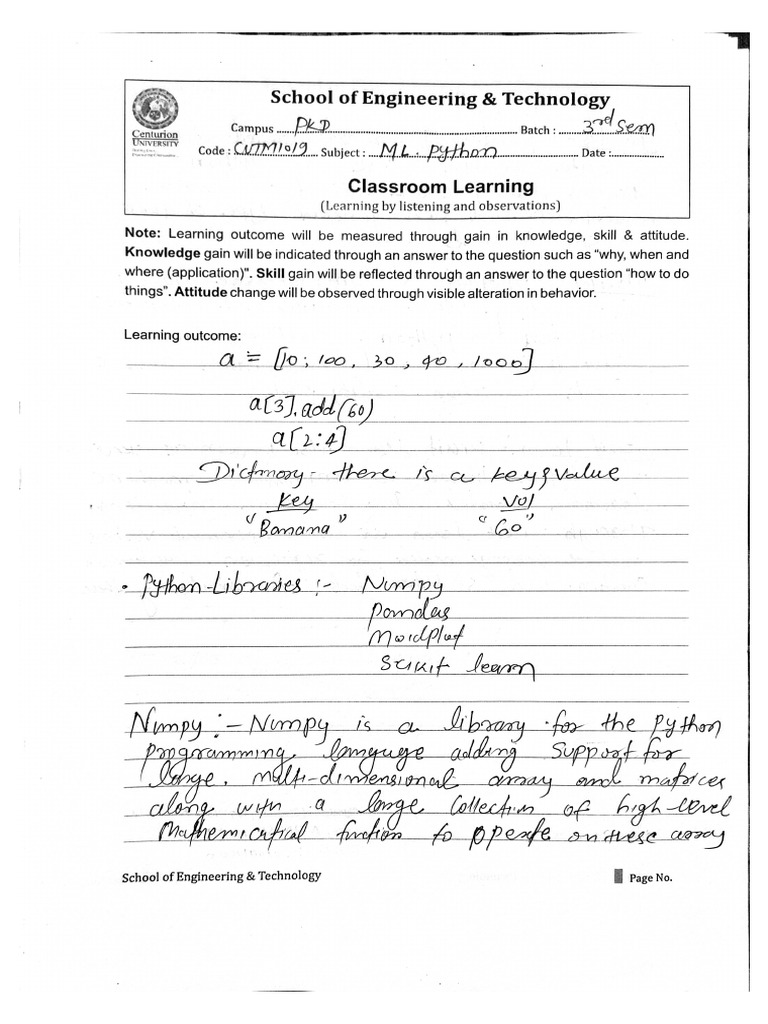 School of Engineering & Technology
Centurion
UNIVERSITY
Campus ...... PKD ...... Batch : ...... 3rd Sem
Code : CUTM1019 Subject : ... ML. Python ...... Date : ......
Classroom Learning
(Learning by listening and observations)
Note: Learning outcome will be measured through gain in knowledge, skill & attitude.
Knowledge gain will be indicated through an answer to the question such as "why, when and
where (application)". Skill gain will be reflected through an answer to the question "how to do
things". Attitude change will be observed through visible alteration in behavior.
Learning outcome:
a = [10, 100, 30, 40, 1000]
a[3].add(60)
a[2:4]
Dictinory - there is a key & value
Key Val
"Banana" "60"
• Python-Libraries :- Numpy
Pandas
Scikit learn
Numpy :- Numpy is a library for the python
programming languge adding support for
large, multi-dimensional array and matrices
along with a large collection of high-level
function to operate on these array
School of Engineering & Technology
Page No.